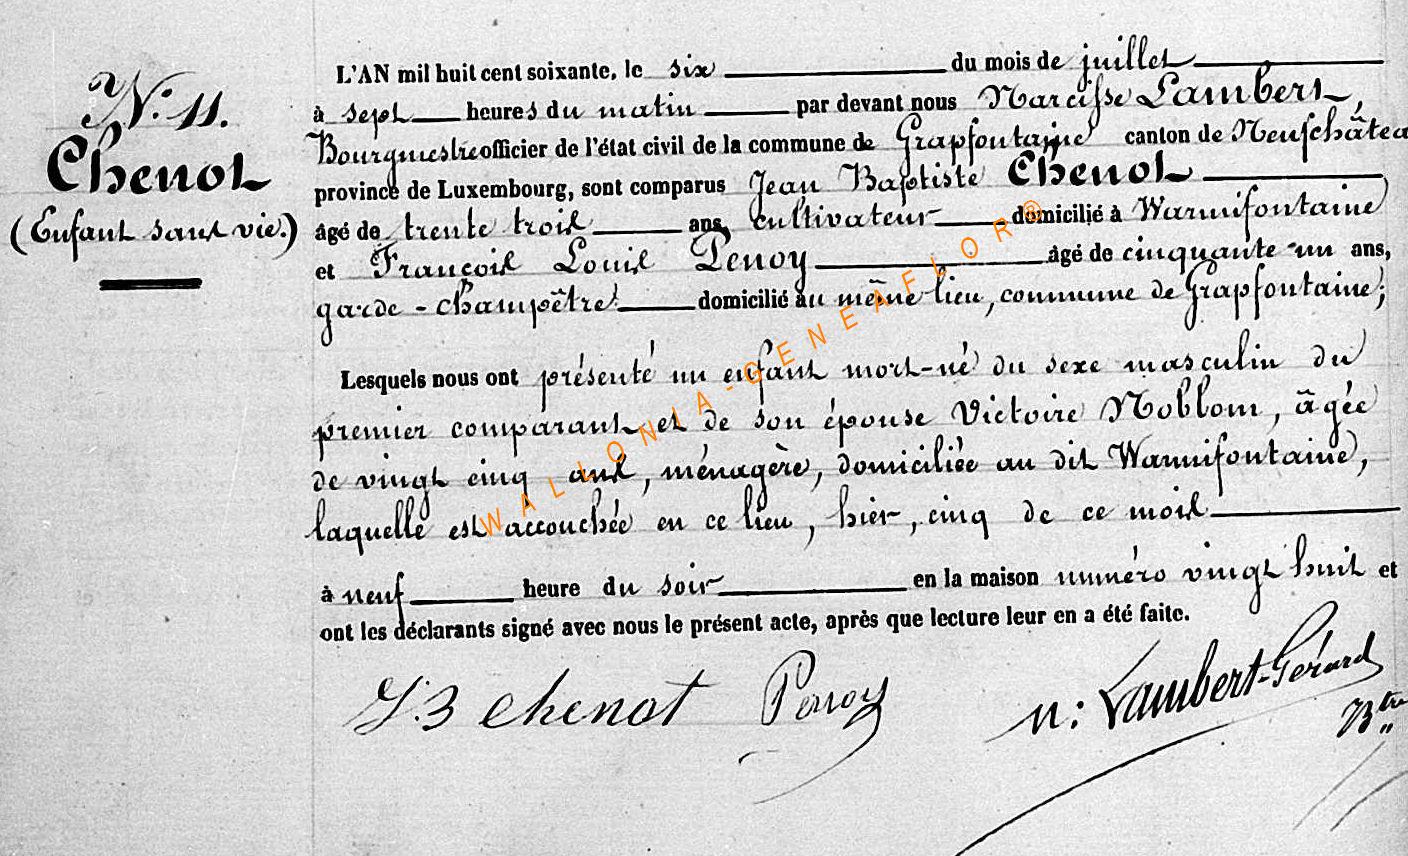 N.° 11.
Chenot
(Enfant sans vie.)
L'AN mil huit cent soixante, le six du mois de juillet
à sept heures du matin par devant nous Narcisse Lambert,
Bourgmestre officier de l'état civil de la commune de Grapfontaine canton de Neufchâtea
province de Luxembourg, sont comparus Jean Baptiste Chenot
âgé de trente trois ans, cultivateur domicilié à Warmifontaine
et François Louis Penoy âgé de cinquante-un ans,
garde-champêtre domicilié au même lieu, commune de Grapfontaine;
Lesquels nous ont présenté un enfant mort-né du sexe masculin du
premier comparant et de son épouse Victoire Noblom, âgée
de vingt cinq ans, ménagère, domiciliée au dit Warmifontaine,
laquelle est accouchée en ce lieu, hier, cinq de ce mois
à neuf heure du soir en la maison numéro vingt huit et
ont les déclarants signé avec nous le présent acte, après que lecture leur en a été faite.
J.B Chenot Penoy N: Lambert-Gérard
Btre
WALLONIA-GENEAFLOR®